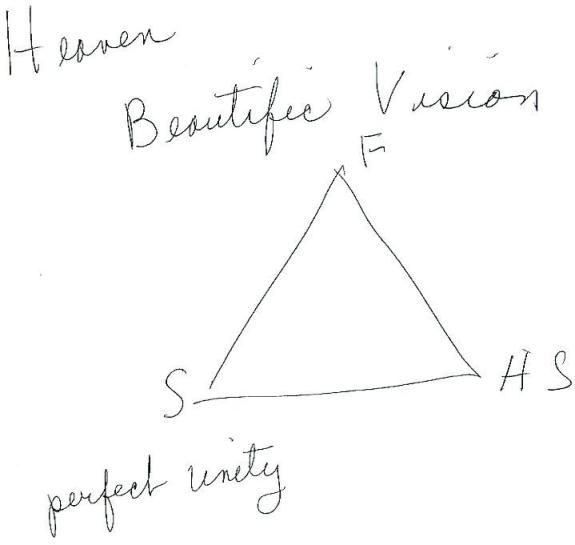 Heaven
Beautific Vision
F
S
H S
perfect unity